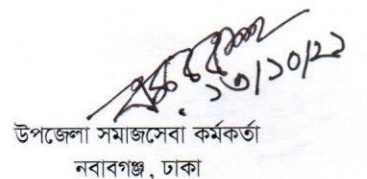 ২৩/১০/২২
উপজেলা সমাজসেবা কর্মকর্তা
নবাবগঞ্জ, ঢাকা